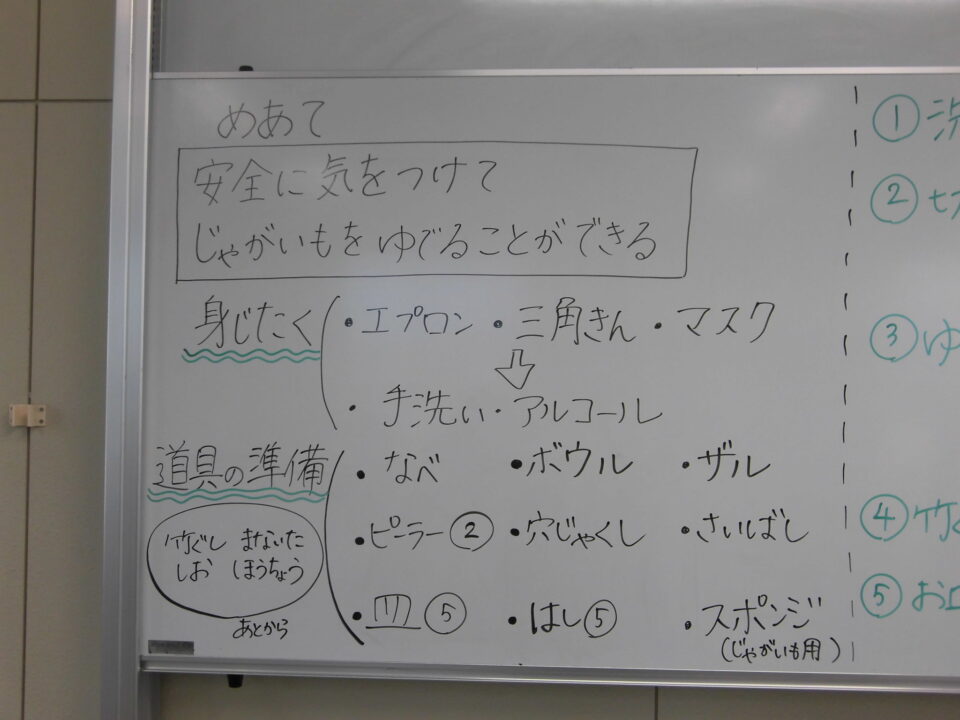 めあて
安全に気をつけて
じゃがいもをゆでることができる
身じたく
・エプロン ・三角きん ・マスク
⇩
・手洗い・アルコール
道具の準備
・なべ ・ボウル ・ザル
・ピーラー② ・穴じゃくし ・さいばし
・皿⑤ ・はし⑤ ・スポンジ
(じゃがいも用)
竹ぐし まないた
しお ほうちょう
あとから
① 洗
② 切
③ ゆ
④ 竹ぐ
⑤ お皿